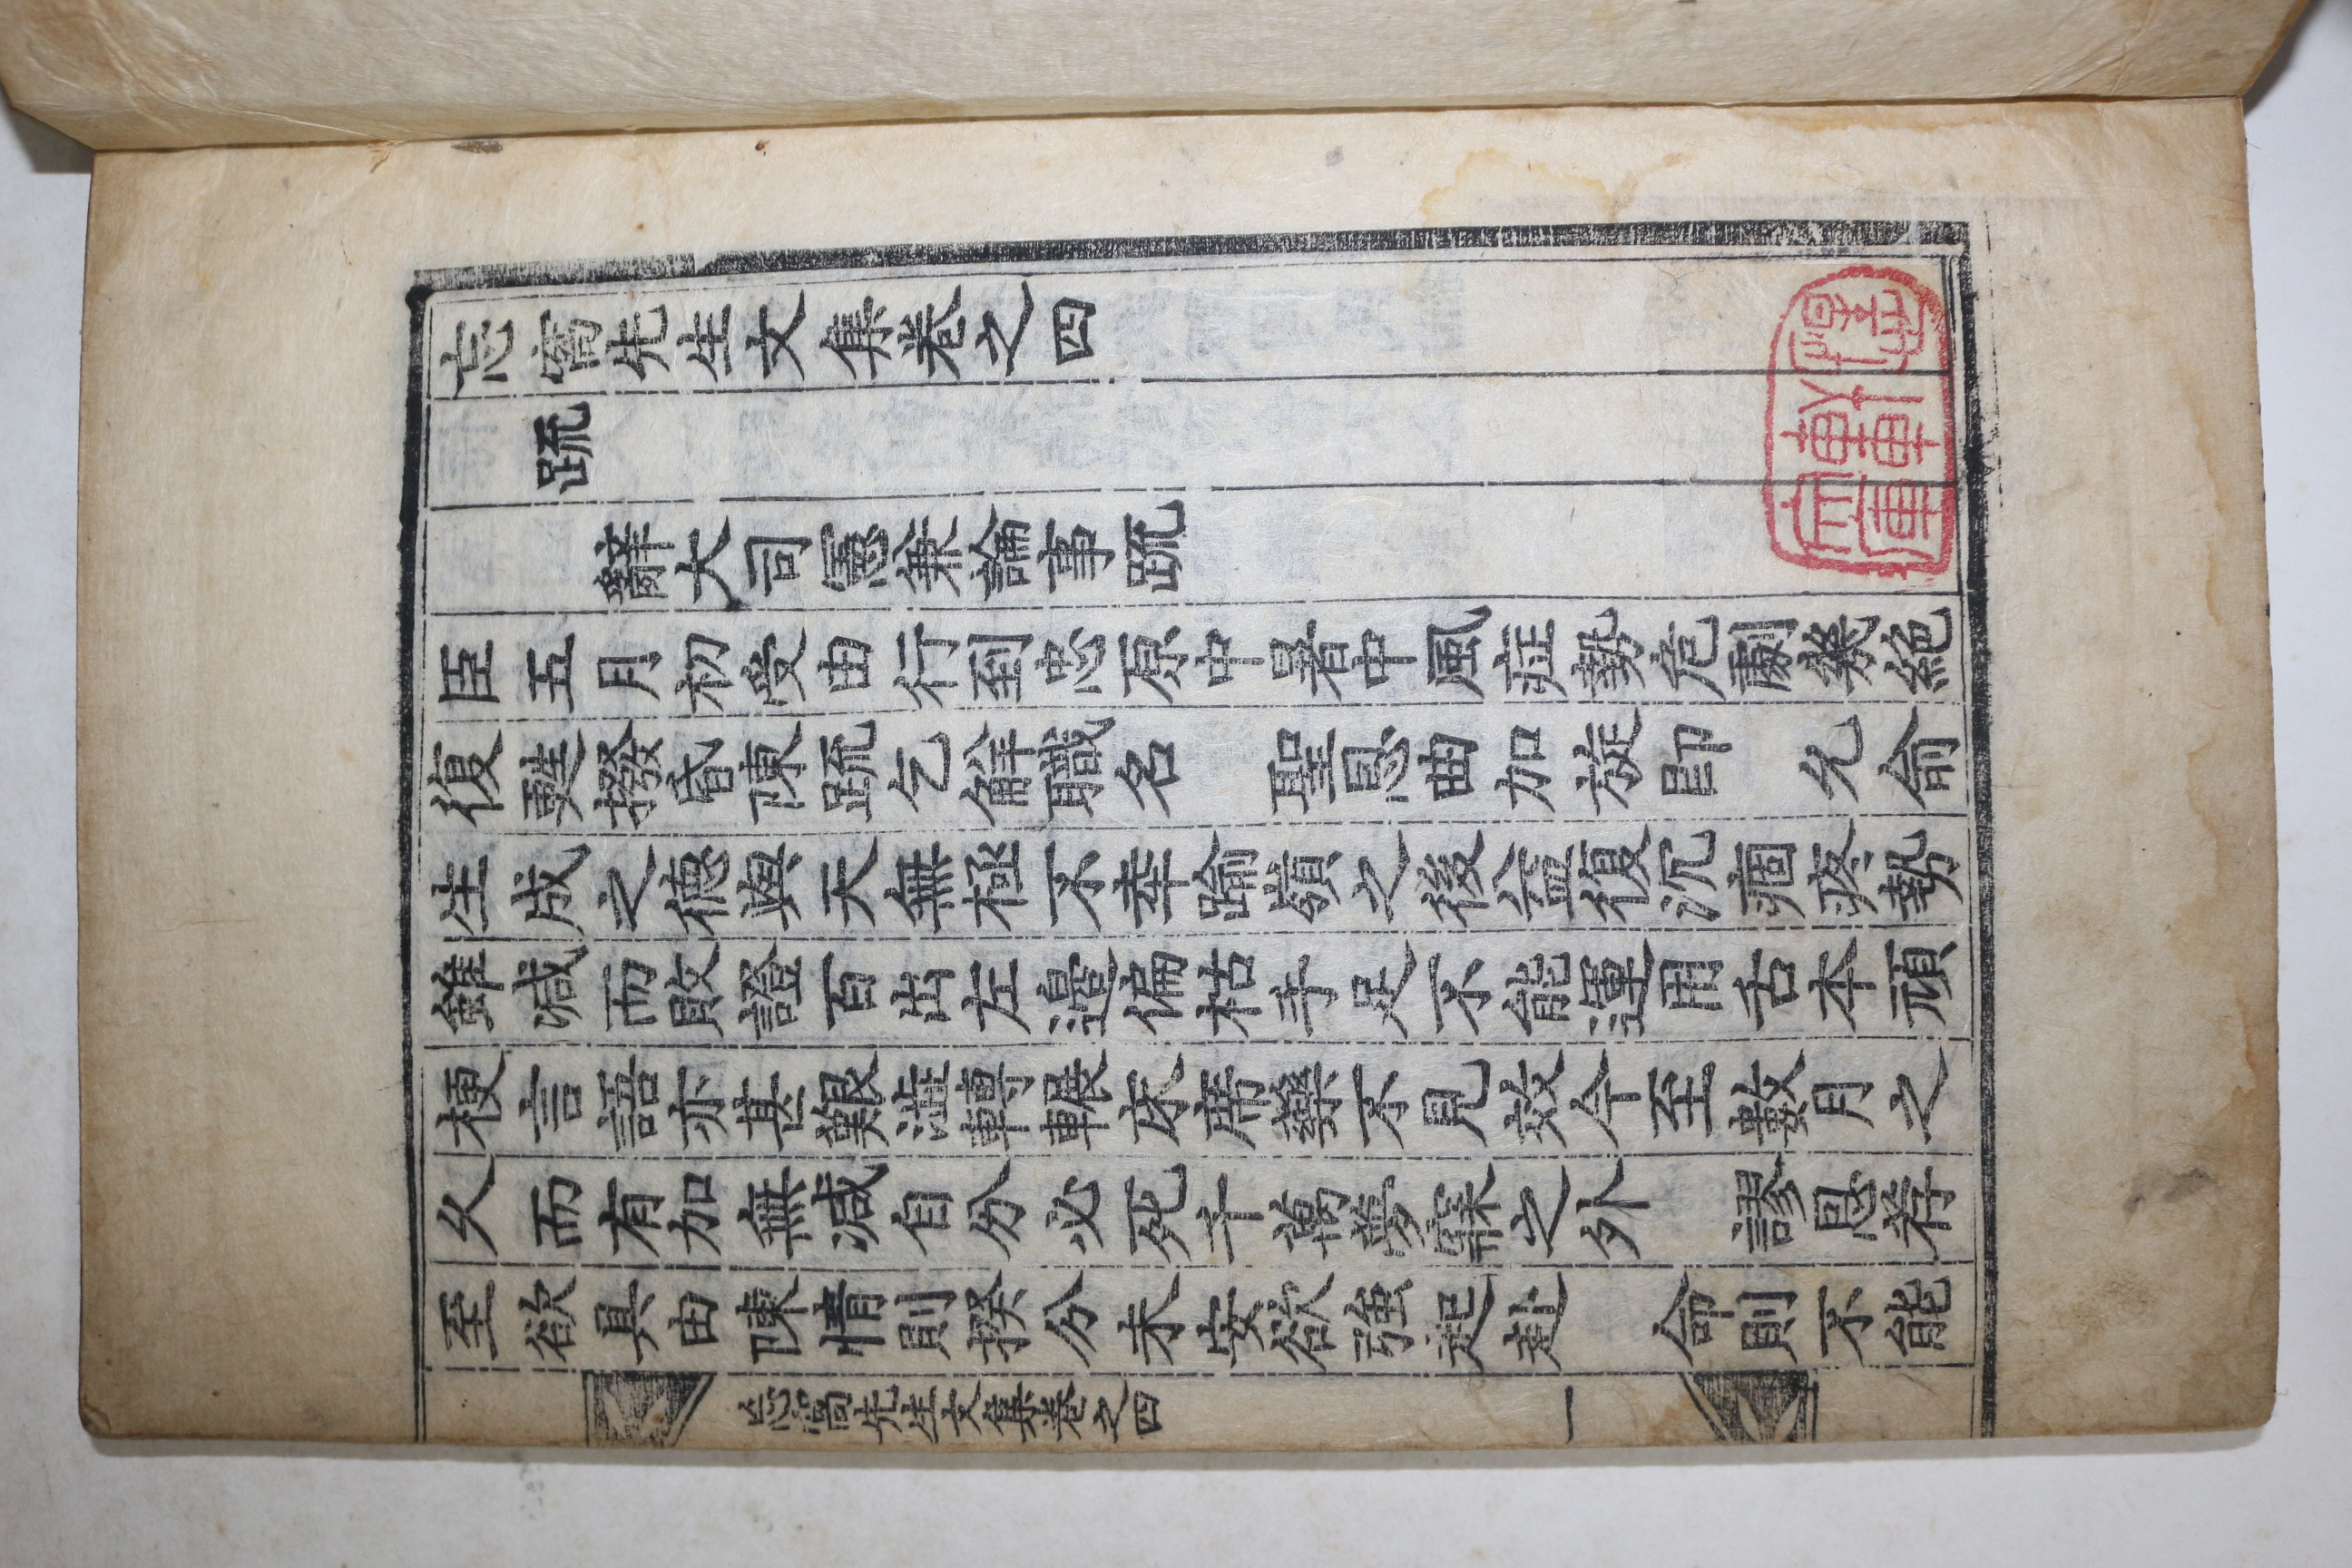 忘窩先生文集卷之四
疏
辭大司憲兼論事疏
臣五月初受由行到忠原中暑中風症勢危劇幾絶
復甦撥昏陳疏乞解職名 聖恩曲加旋卽 允俞
生成之德與天無極不幸踰嶺之後益復沉痼疼勢
雖减而敗證百出左邊偏枯手足不能運用舌本頑
梗言語亦甚艱澁轉輾床席藥不見效今至數月之
久而有加無减自分必死千萬夢寐之外 謬恩荐
至欲具由陳情則揆分未安欲強起赴 命則不能
忘窩先生文集卷之四 一
軒
文庫